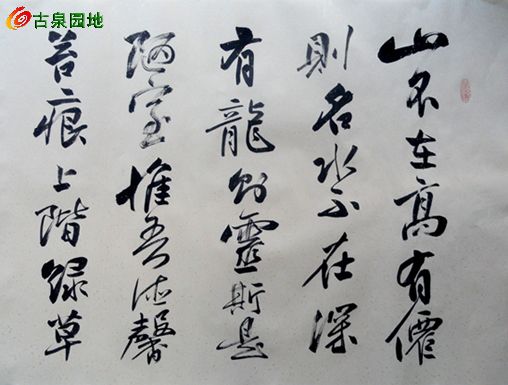 古泉园地
山不在高有僊
則名水不在深
有龍則靈斯是
陋室惟吾德馨
苔痕上階綠草